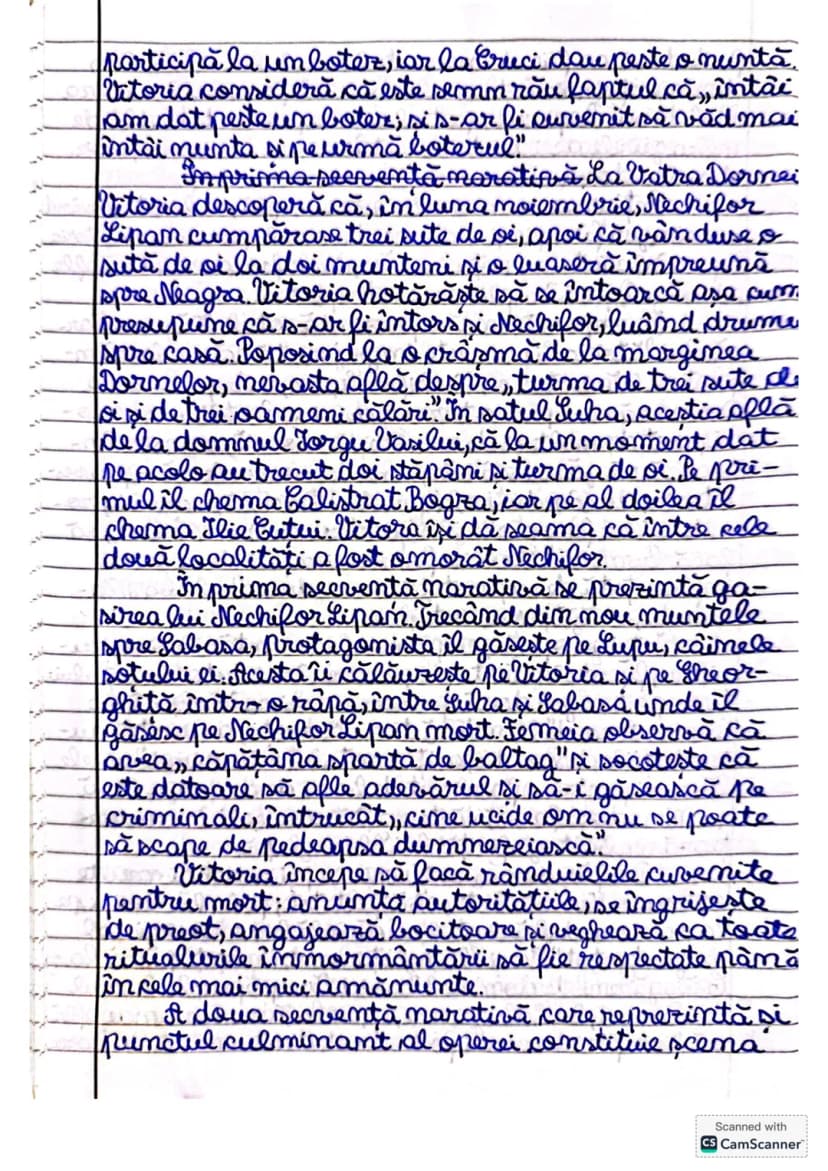 participă la un botez, iar la Cruci dau peste o nuntă.
Vitoria consideră că este semn rău faptul că „întâi
am dat peste un botez; și s-ar fi cuvenit să văd mai
întâi nunta și pe urmă botezul."
În prima secvență narativă La Vatra Dornei
Vitoria descoperă că, în luna noiembrie, Nechifor
Lipan cumpărase trei sute de oi, apoi că vânduse o
sută de oi la doi munteni și o luaseră împreună
spre Neagra. Vitoria hotărăște să se întoarcă așa cum
presupune că s-ar fi întors și Nechifor, luând drumu
spre casă. Poposind la o crâșmă de la marginea
Dornelor, nevasta află despre „turma de trei sute de
oi și de trei oameni călări". În satul Suha, aceștia află
de la domnul Iorgu Vasiliu, că la un moment dat
pe acolo au trecut doi stăpâni și turma de oi. Pe pri-
mul îl chema Calistrat Bogza, iar pe al doilea îl
chema Ilie Cuțui. Vitora își dă seama că între cele
două localități a fost omorât Nechifor.
În prima secvență narativă se prezintă gă-
sirea lui Nechifor Lipan. Trecând din nou muntele
spre Sabasa, protagonista îl găsește pe Lupu, câinele
soțului ei. Acesta îi călăuzește pe Vitoria și pe Gheor-
ghiță într-o râpă, între Suha și Sabasa unde îl
găsesc pe Nechifor Lipan mort. Femeia observă că
avea „căpățâna spartă de baltag" și socotește că
este datoare să afle adevărul și să-i găsească pe
criminali, întrucât „cine ucide om nu se poate
să scape de pedeapsa dumnezeiască".
Vitoria începe să facă rânduielile cuvenite
pentru mort: anunță autoritățiile, se îngrijește
de preot, angajează bocitoare și veghează ca toate
ritualurile înmormântării să fie respectate până
în cele mai mici amănunte.
A doua secvență narativă care reprezintă și
punctul culminant al operei constituie scena
Scanned with
CS CamScanner